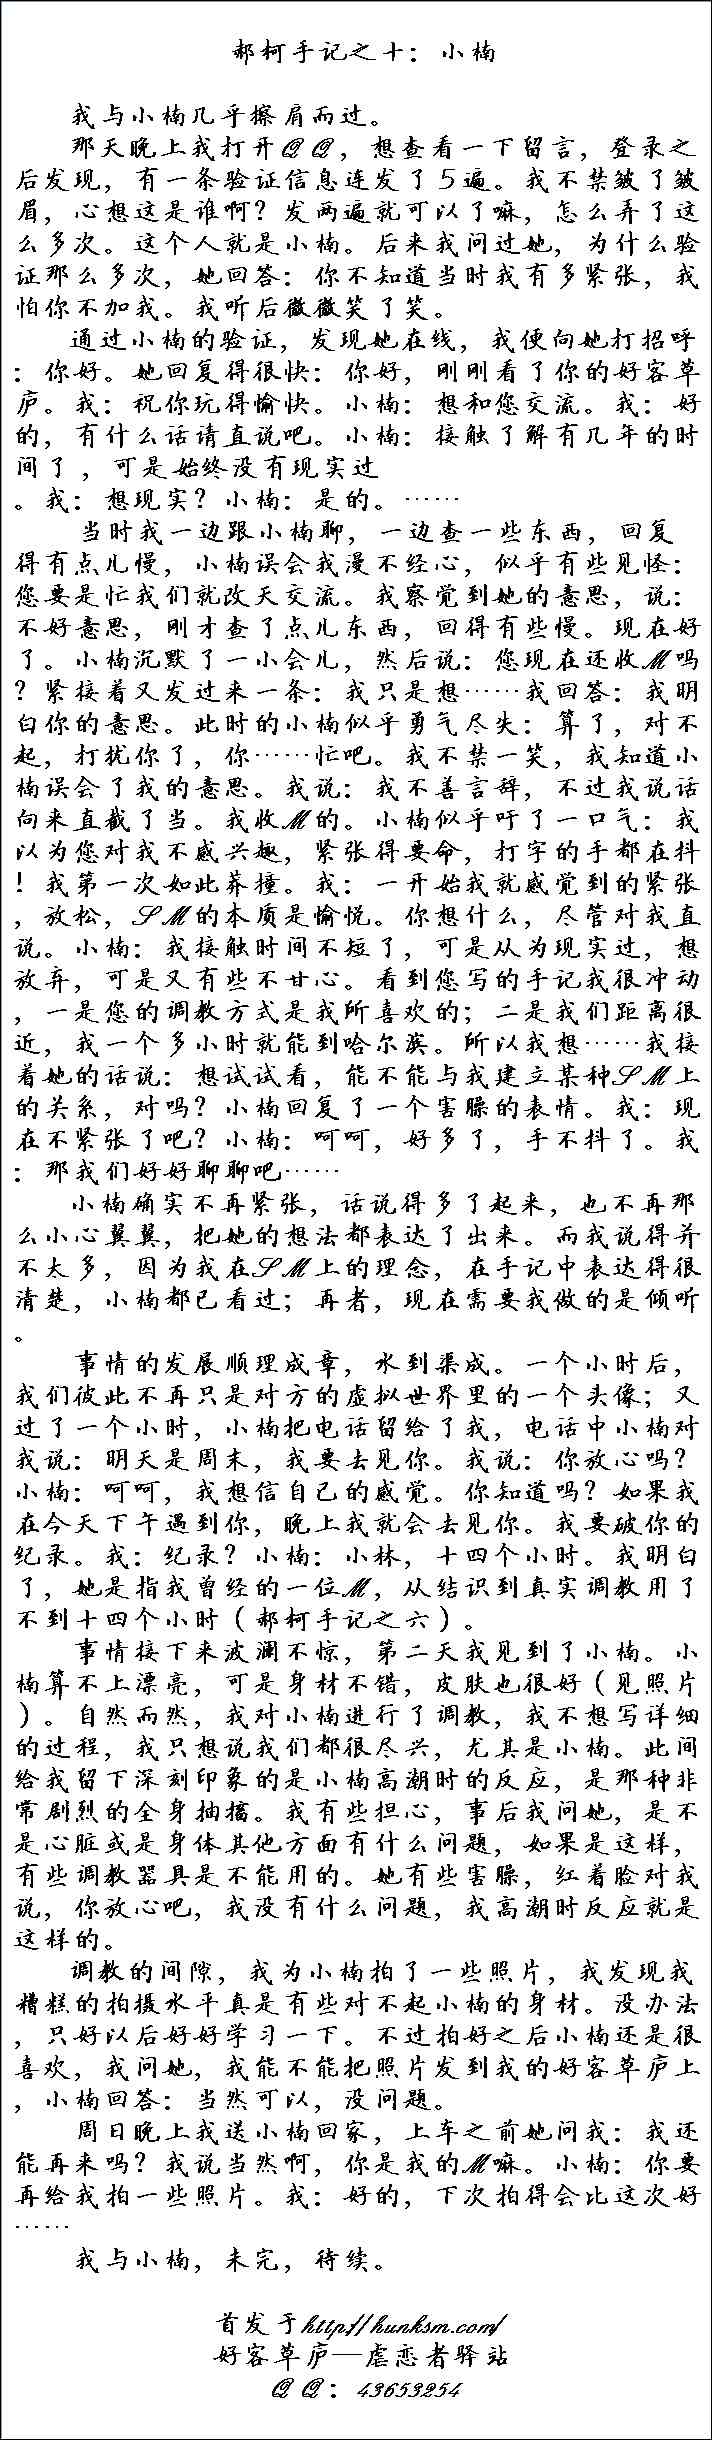 郝柯手记之十：小楠
我与小楠几乎擦肩而过。
那天晚上我打开QQ，想查看一下留言，登录之
后发现，有一条验证信息连发了5遍。我不禁皱了皱
眉，心想这是谁啊？发两遍就可以了嘛，怎么弄了这
么多次。这个人就是小楠。后来我问过她，为什么验
证那么多次，她回答：你不知道当时我有多紧张，我
怕你不加我。我听后微微笑了笑。
通过小楠的验证，发现她在线，我便向她打招呼
：你好。她回复得很快：你好，刚刚看了你的好客草
庐。我：祝你玩得愉快。小楠：想和您交流。我：好
的，有什么话请直说吧。小楠：接触了解有几年的时
间了，可是始终没有现实过
。我：想现实？小楠：是的。……
当时我一边跟小楠聊，一边查一些东西，回复
得有点儿慢，小楠误会我漫不经心，似乎有些见怪：
您要是忙我们就改天交流。我察觉到她的意思，说：
不好意思，刚才查了点儿东西，回得有些慢。现在好
了。小楠沉默了一小会儿，然后说：您现在还收M吗
？紧接着又发过来一条：我只是想……我回答：我明
白你的意思。此时的小楠似乎勇气尽失：算了，对不
起，打扰你了，你……忙吧。我不禁一笑，我知道小
楠误会了我的意思。我说：我不善言辞，不过我说话
向来直截了当。我收M的。小楠似乎吁了一口气：我
以为您对我不感兴趣，紧张得要命，打字的手都在抖
！我第一次如此莽撞。我：一开始我就感觉到的紧张
，放松，SM的本质是愉悦。你想什么，尽管对我直
说。小楠：我接触时间不短了，可是从为现实过，想
放弃，可是又有些不甘心。看到您写的手记我很冲动
，一是您的调教方式是我所喜欢的；二是我们距离很
近，我一个多小时就能到哈尔滨。所以我想……我接
着她的话说：想试试看，能不能与我建立某种SM上
的关系，对吗？小楠回复了一个害臊的表情。我：现
在不紧张了吧？小楠：呵呵，好多了，手不抖了。我
：那我们好好聊聊吧……
小楠确实不再紧张，话说得多了起来，也不再那
么小心翼翼，把她的想法都表达了出来。而我说得并
不太多，因为我在SM上的理念，在手记中表达得很
清楚，小楠都已看过；再者，现在需要我做的是倾听
。
事情的发展顺理成章，水到渠成。一个小时后，
我们彼此不再只是对方的虚拟世界里的一个头像；又
过了一个小时，小楠把电话留给了我，电话中小楠对
我说：明天是周末，我要去见你。我说：你放心吗？
小楠：呵呵，我想信自己的感觉。你知道吗？如果我
在今天下午遇到你，晚上我就会去见你。我要破你的
纪录。我：纪录？小楠：小林，十四个小时。我明白
了，她是指我曾经的一位M，从结识到真实调教用了
不到十四个小时（郝柯手记之六）。
事情接下来波澜不惊，第二天我见到了小楠。小
楠算不上漂亮，可是身材不错，皮肤也很好（见照片
）。自然而然，我对小楠进行了调教，我不想写详细
的过程，我只想说我们都很尽兴，尤其是小楠。此间
给我留下深刻印象的是小楠高潮时的反应，是那种非
常剧烈的全身抽搐。我有些担心，事后我问她，是不
是心脏或是身体其他方面有什么问题，如果是这样，
有些调教器具是不能用的。她有些害臊，红着脸对我
说，你放心吧，我没有什么问题，我高潮时反应就是
这样的。
调教的间隙，我为小楠拍了一些照片，我发现我
糟糕的拍摄水平真是有些对不起小楠的身材。没办法
，只好以后好好学习一下。不过拍好之后小楠还是很
喜欢，我问她，我能不能把照片发到我的好客草庐上
，小楠回答：当然可以，没问题。
周日晚上我送小楠回家，上车之前她问我：我还
能再来吗？我说当然啊，你是我的M嘛。小楠：你要
再给我拍一些照片。我：好的，下次拍得会比这次好
……
我与小楠，未完，待续。
首发于http://hunksm.com/
好客草庐—虐恋者驿站
QQ：43653254